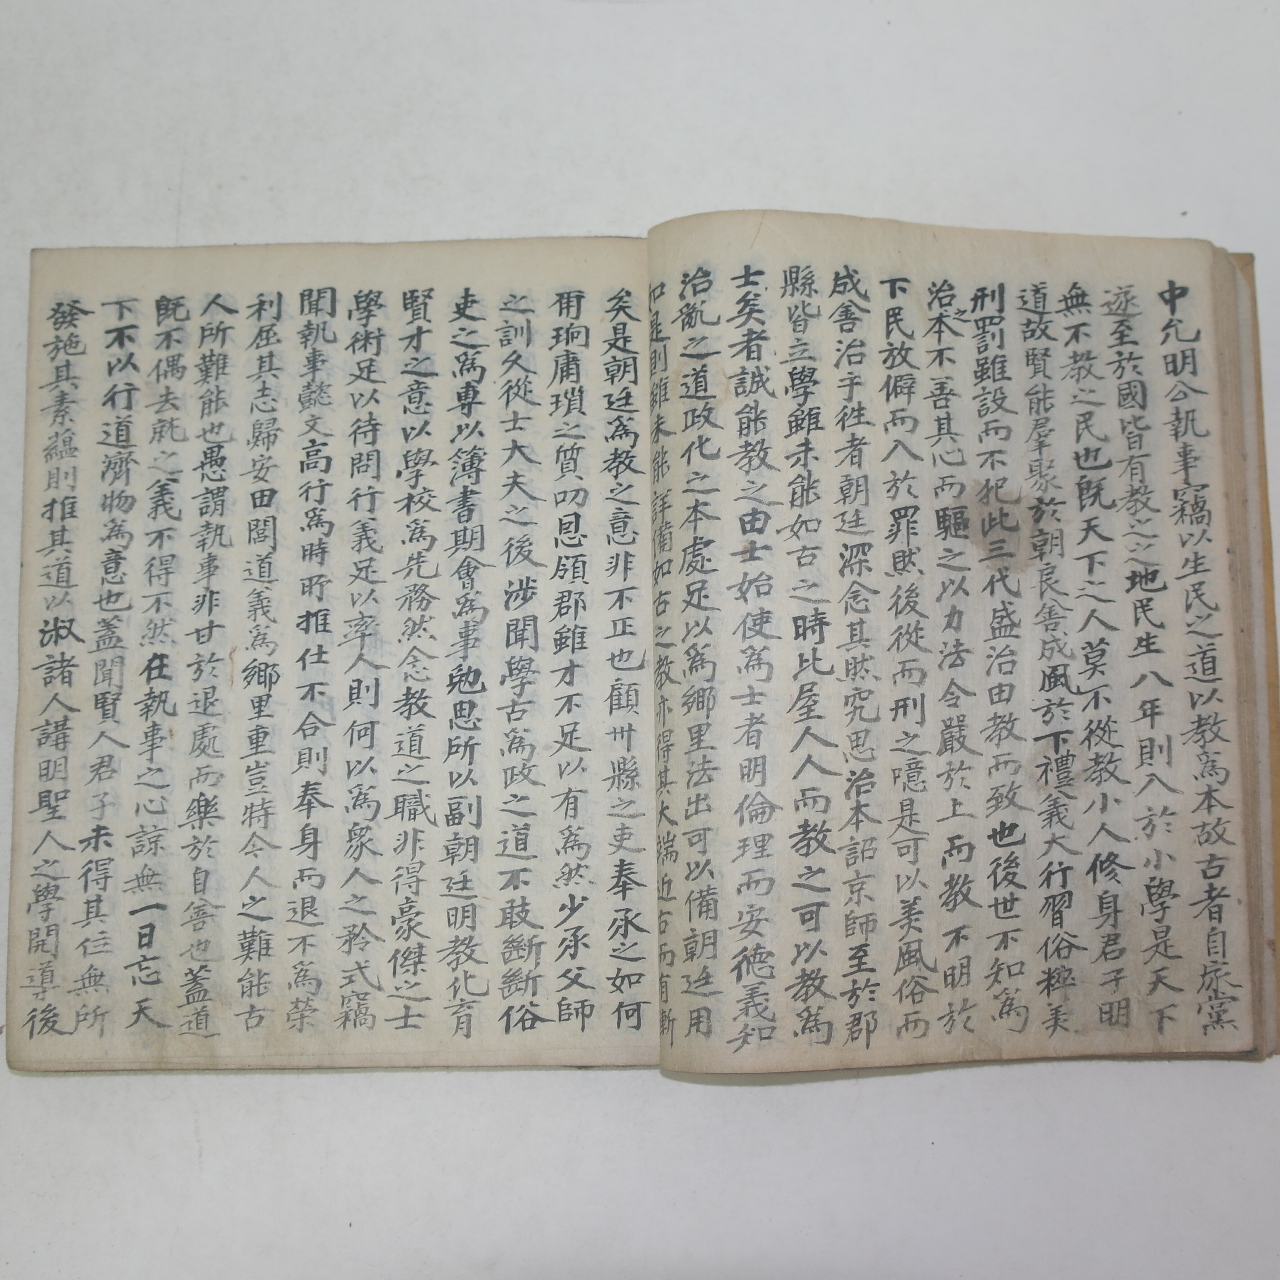 中允明公執事竊以生民之道以教爲本故古者自家黨
遂至於國皆有教之之地民生八年則入於小學是天下
無不教之民也旣天下之人莫不從教小人修身君子明
道故賢能羣聚於朝良善成風於下禮義大行習俗粹美
刑罰雖設而不犯此三代盛治由教而致也後世不知爲
治之本不善其心而驅之以力法令嚴於上而教不明於
下民放僻而入於罪然後從而刑之噫是可以美風俗而
成善治乎徃者朝廷深念其然究思治本詔京師至於郡
縣皆立學雖未能如古之時比屋人人而教之可以教爲
士矣者誠能教之由士始使爲士者明倫理而安德義知
治亂之道政化之本處足以爲鄉里法出可以備朝廷用
如是則雖未能詳備如古之教亦得其大端近古而有漸
矣是朝廷爲教之意非不正也顧卅縣之吏奉承之如何
甭珦庸瑣之質叨恩領郡雖才不足以有爲然少承父師
之訓久從士大夫之後涉聞學古爲政之道不敢斷斷俗
吏之爲專以簿書期會爲事勉思所以副朝廷明教化育
賢才之意以學校爲先務然念教道之職非得豪傑之士
學術足以待問行義足以率人則何以爲衆人之矜式竊
聞執事懿文高行爲時所推仕不合則奉身而退不爲榮
利屈其志歸安田閭道義爲鄉里重豈特今人之難能古
人所難能也愚謂執事非甘於退處而樂於自善也蓋道
旣不偶去就之義不得不然在執事之心諒無一日忘天
下不以行道濟物爲意也蓋聞賢人君子未得其位無所
發施其素蘊則推其道以淑諸人講明聖人之學開導後